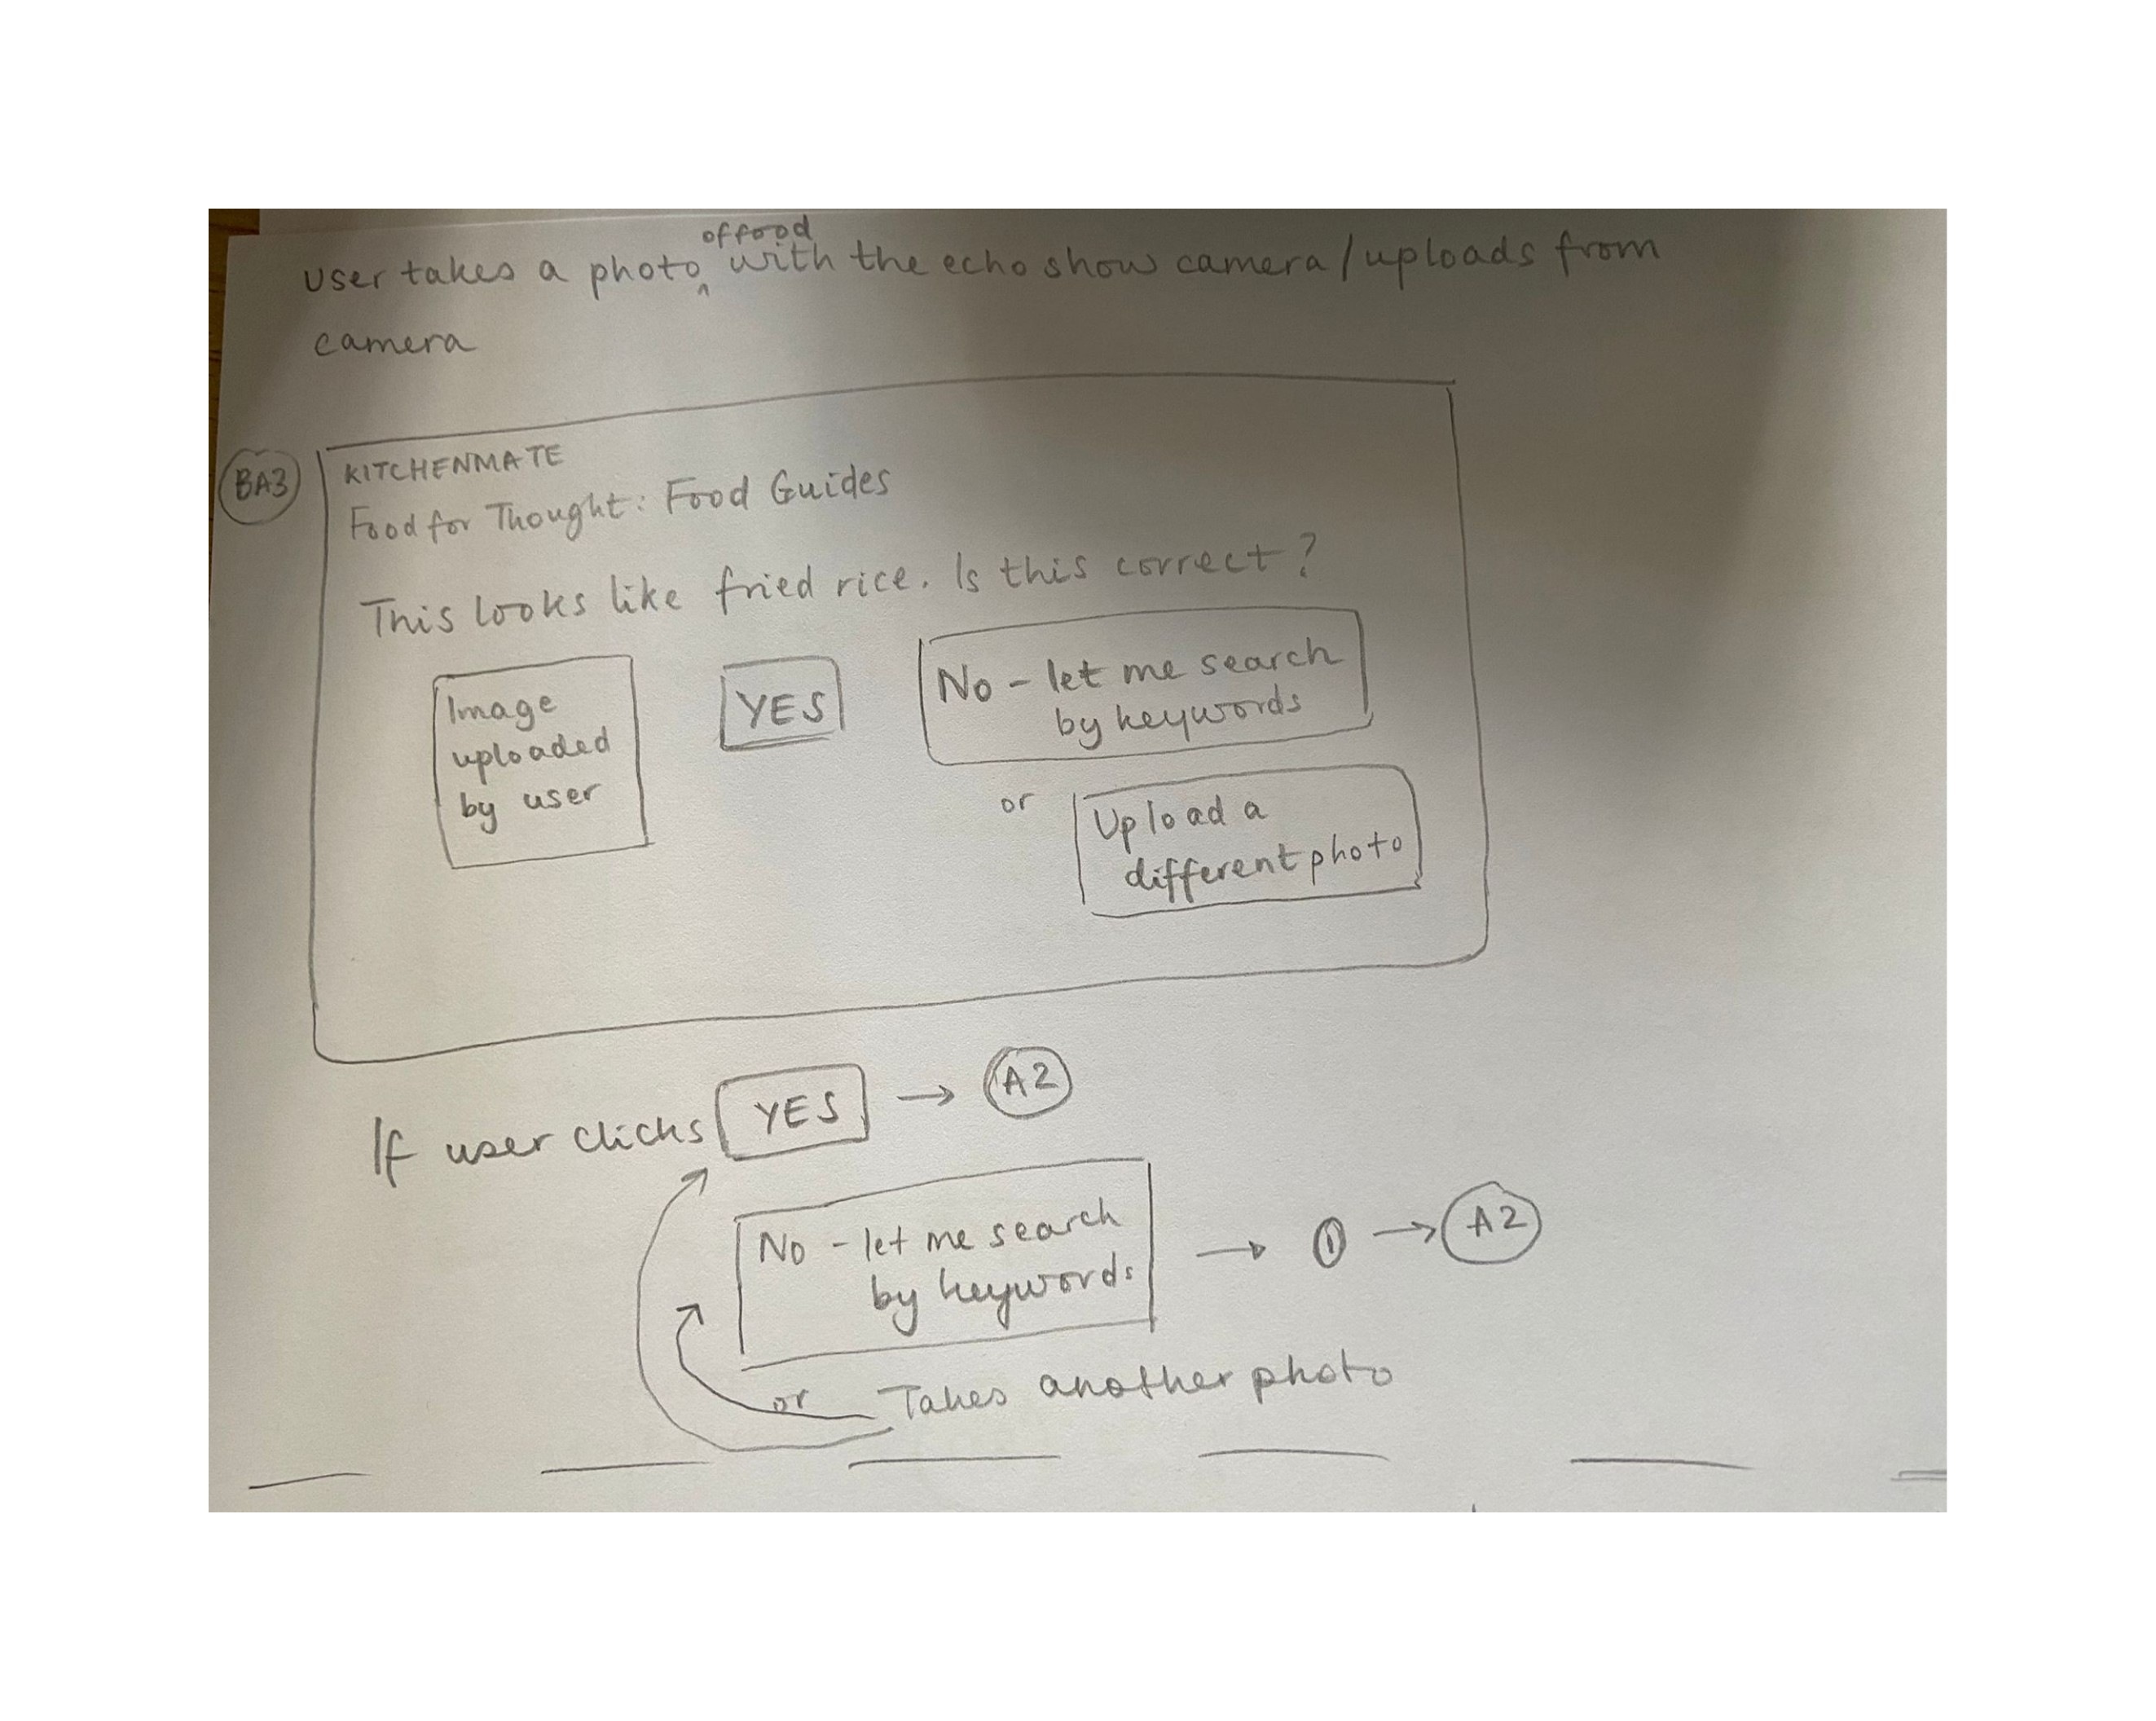 User takes a photo of food with the echo show camera / uploads from
camera
BA3
KITCHENMATE
Food for Thought: Food Guides
This looks like fried rice. Is this correct?
Image
uploaded
by user
YES
No - let me search
by keywords
or
Upload a
different photo
If user clicks YES → A2
No - let me search
by keywords
→ 1 → A2
or Takes another photo